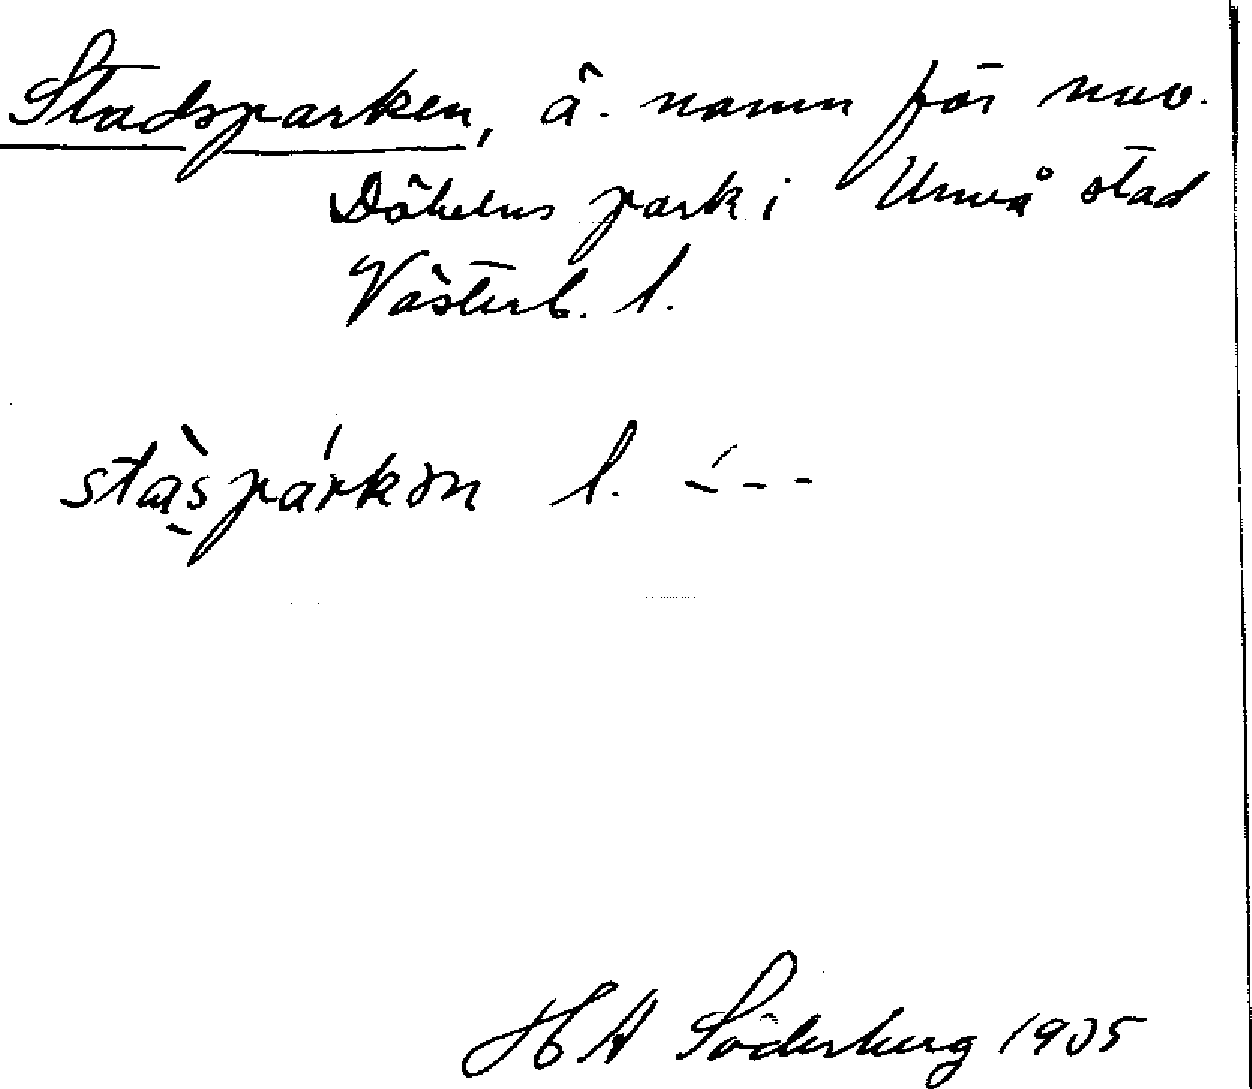 Stadsparken, ä. namn för nuv.
Döbelns park i Umeå stad
Västerb. l.
stàspárkən l. -́ - -
H A Söderberg 1905